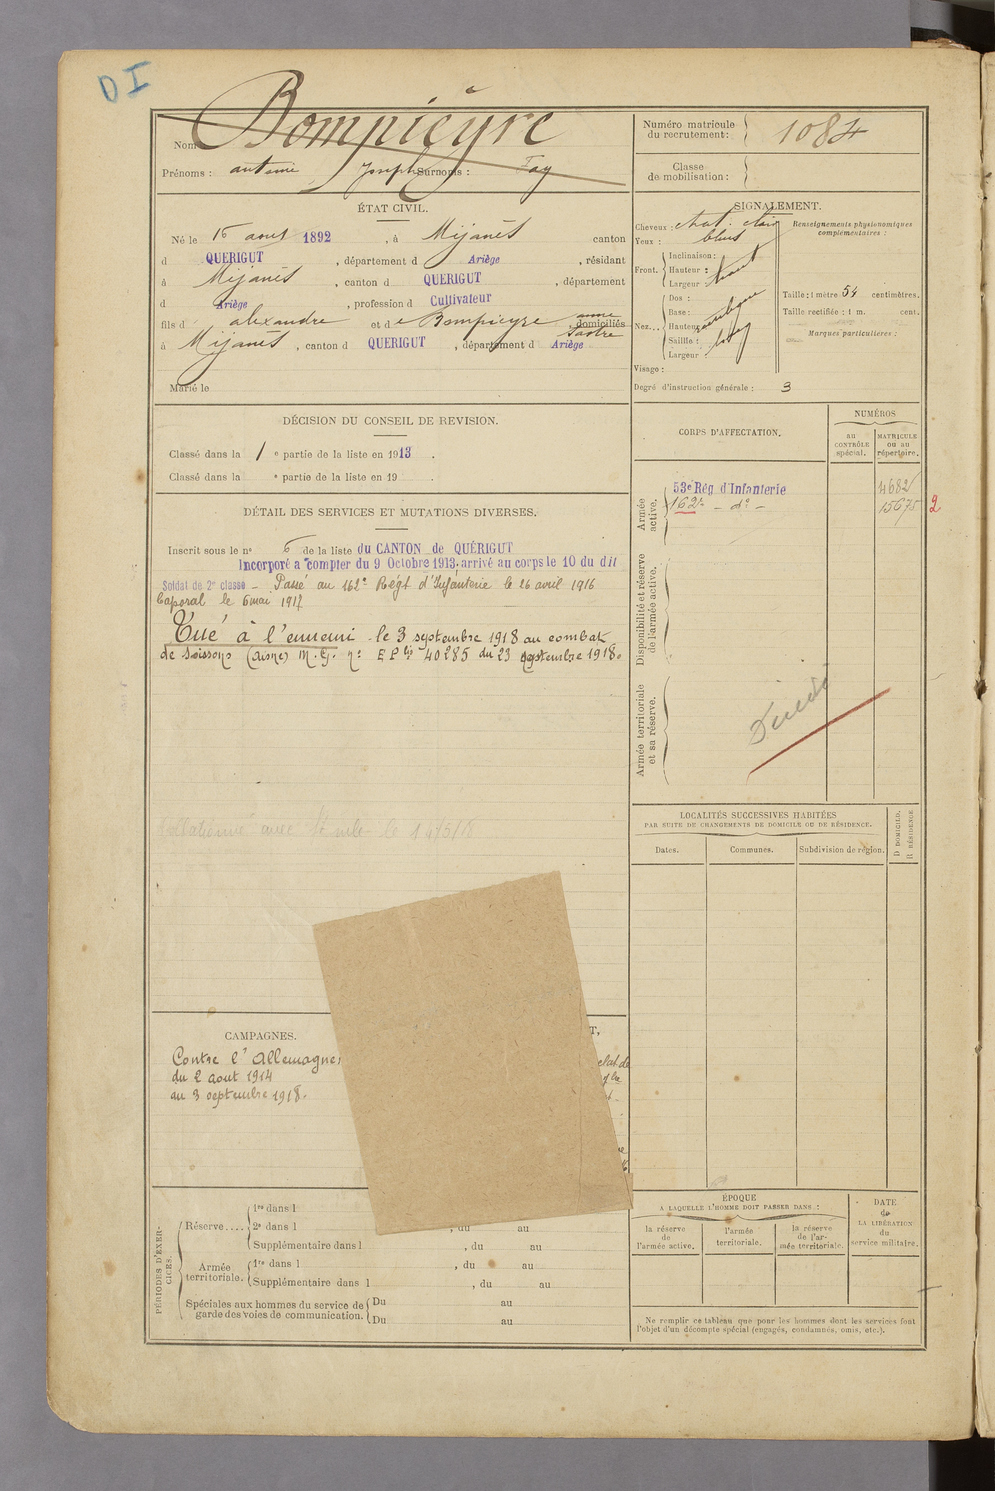 DI
Nom Bompieyre
Prénoms : antoine Joseph Surnoms : Fay
Numéro matricule du recrutement: 1084
Classe de mobilisation :
ÉTAT CIVIL.
Né le 16 aout 1892, à Mijanès canton
d QUERIGUT, département d Ariège, résidant
à Mijanès, canton d QUERIGUT, département
d Ariège, profession d Cultivateur
fils d alexandre et de Bompieyre anne
domiciliés
à Mijanès, canton d QUERIGUT, département d Ariège
Marié le
SIGNALEMENT.
Cheveux : chat. clair
Yeux : bleus
Front. Inclinaison:
Hauteur : haut
Largeur :
Nez... Dos :
Base:
Hauteur:
Saillie :
Largeur :
Visage :
Degré d'instruction générale : 3
Renseignements physionomiques complémentaires :
Taille : 1 mètre 54 centimètres.
Taille rectifiée : 1 m. cent.
Marques particulières :
DÉCISION DU CONSEIL DE REVISION.
Classé dans la 1 e partie de la liste en 1913.
Classé dans la e partie de la liste en 19 .
DÉTAIL DES SERVICES ET MUTATIONS DIVERSES.
Inscrit sous le n° 6 de la liste du CANTON de QUÉRIGUT
Incorporé à compter du 9 Octobre 1913. arrivé au corps le 10 du dit
Soldat de 2e classe – Passé au 162e Régt d'Infanterie le 26 avril 1916
Caporal le 6 mai 1917
Tué à l'ennemi le 3 septembre 1918 au combat
de Soissons (aisne) M.G. n° 40285 du 23 septembre 1918.
CORPS D'AFFECTATION.
NUMÉROS
AU CONTRÔLE spécial.
MATRICULE ou au répertoire.
Armée active.
53e Rég d'Infanterie 4682
162e – do – 15675 2
Disponibilité et réserve de l'armée active.
Armée territoriale et sa réserve.
LOCALITÉS SUCCESSIVES HABITÉES
PAR SUITE DE CHANGEMENTS DE DOMICILE OU DE RÉSIDENCE.
Dates.
Communes.
Subdivision de région.
D DOMICILE.
R RÉSIDENCE
CAMPAGNES.
Contre l'Allemagne
du 2 aout 1914
au 3 septembre 1918.
PÉRIODES D'EXERCICES.
Réserve.... 1re dans l
2e dans l , du au
Supplémentaire dans l , du au
Armée territoriale. 1re dans l , du au
Supplémentaire dans l , du au
Spéciales aux hommes du service de garde des voies de communication. Du au
Du au
ÉPOQUE
A LAQUELLE L'HOMME DOIT PASSER DANS :
la réserve de l'armée active.
l'armée territoriale.
la réserve de l'armée territoriale.
DATE de LA LIBÉRATION du service militaire.
Ne remplir ce tableau que pour les hommes dont les services font
l'objet d'un décompte spécial (engagés, condamnés, omis, etc.).